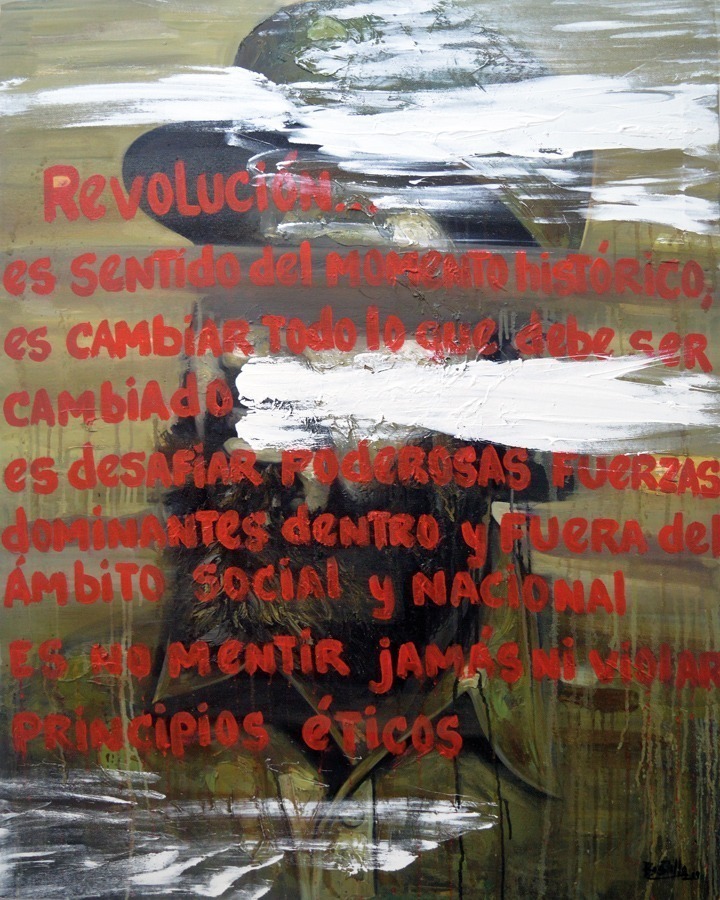 Revolución...
es sentido del momento histórico;
es cambiar todo lo que debe ser
cambiado
es desafiar poderosas fuerzas
dominantes dentro y fuera del
ámbito social y nacional
es no mentir jamás ni violar
principios éticos